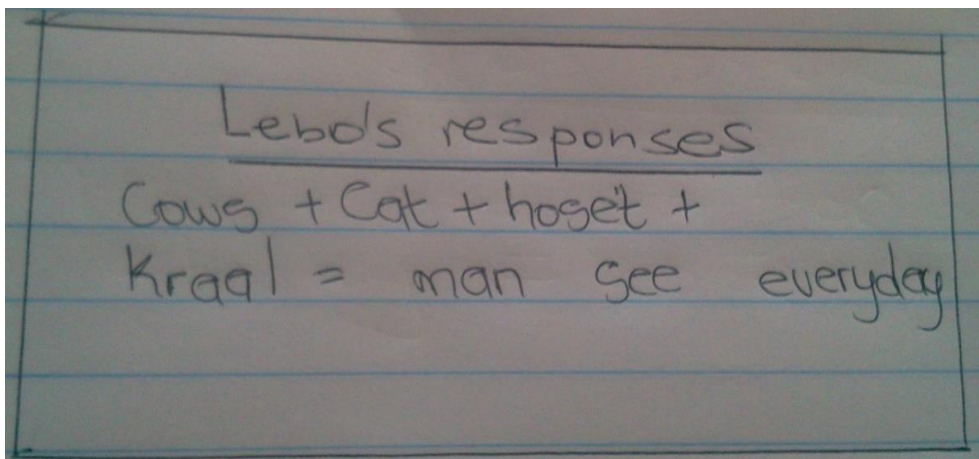 Lebo's responses
Cows + Cat + hoset +
Kraal = man see everyday